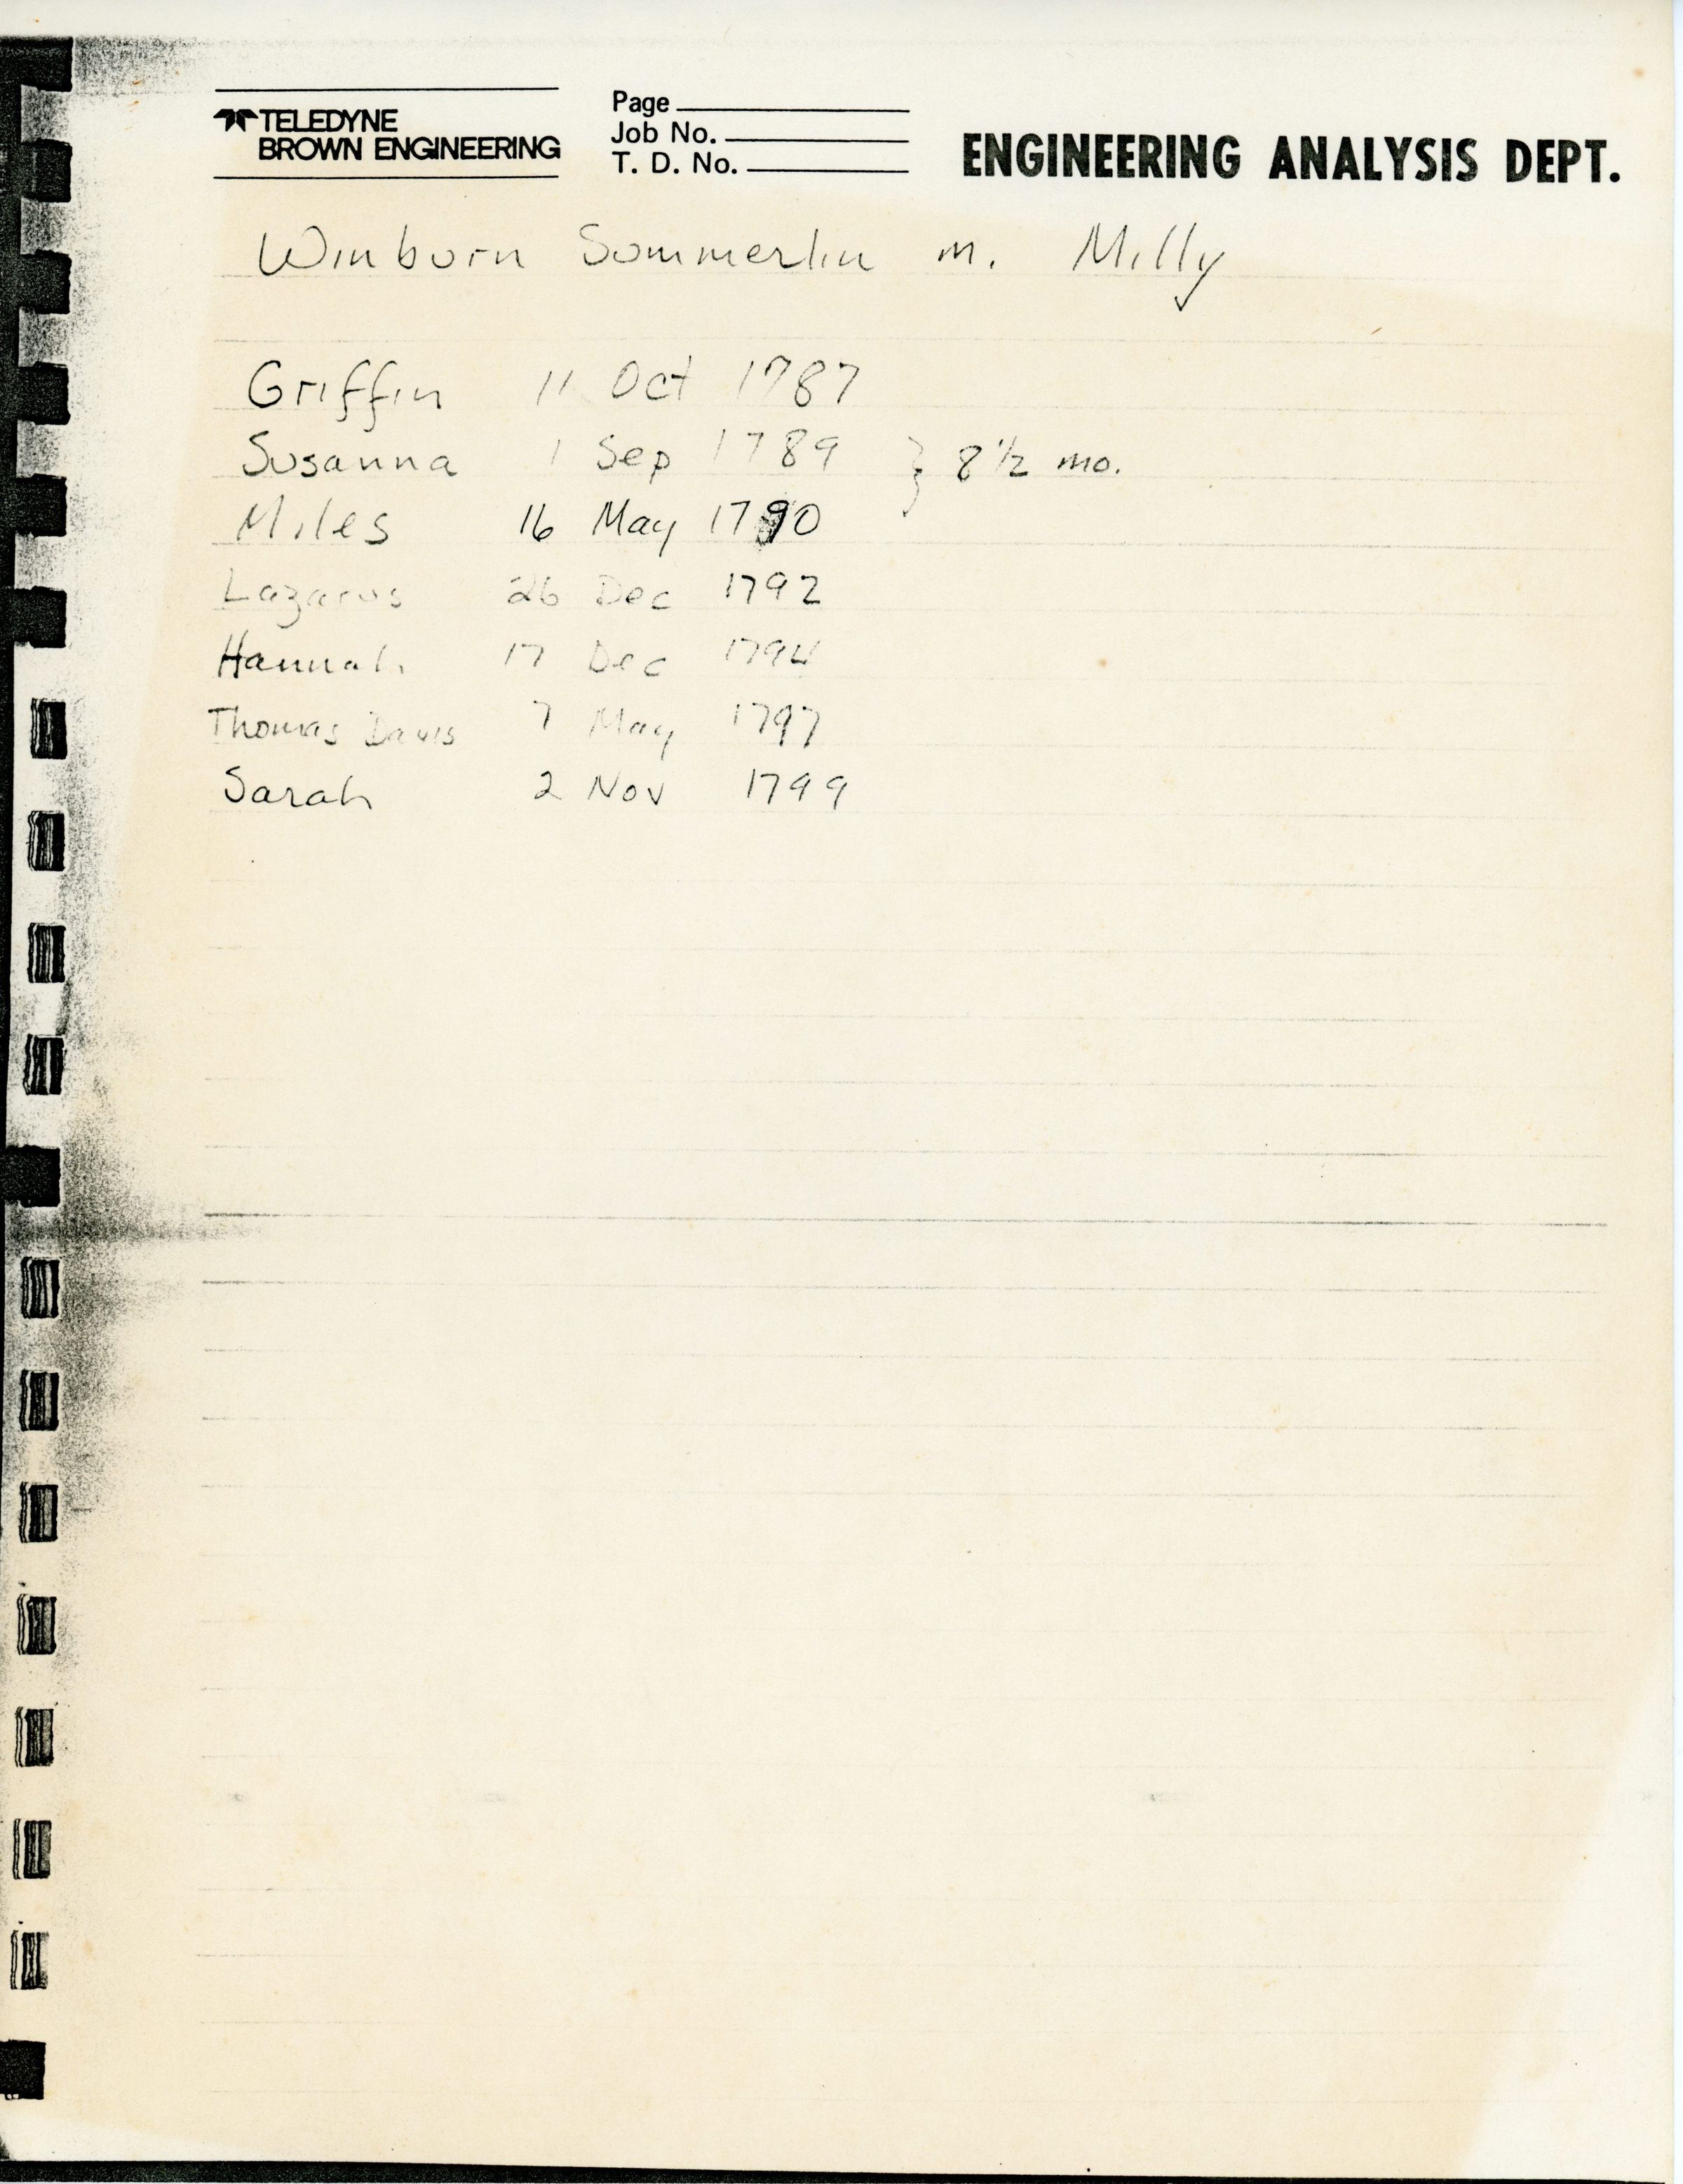 TELEDYNE
BROWN ENGINEERING
Page
Job No.
T. D. No.
ENGINEERING ANALYSIS DEPT.
Winborn Sommerlin m. Milly
Griffin 11 Oct 1787
Susanna 1 Sep 1789 } 8 1/2 mo.
Miles 16 May 1790
Lazarus 26 Dec 1792
Hannah 17 Dec 1794
Thomas Davis 7 May 1797
Sarah 2 Nov 1799